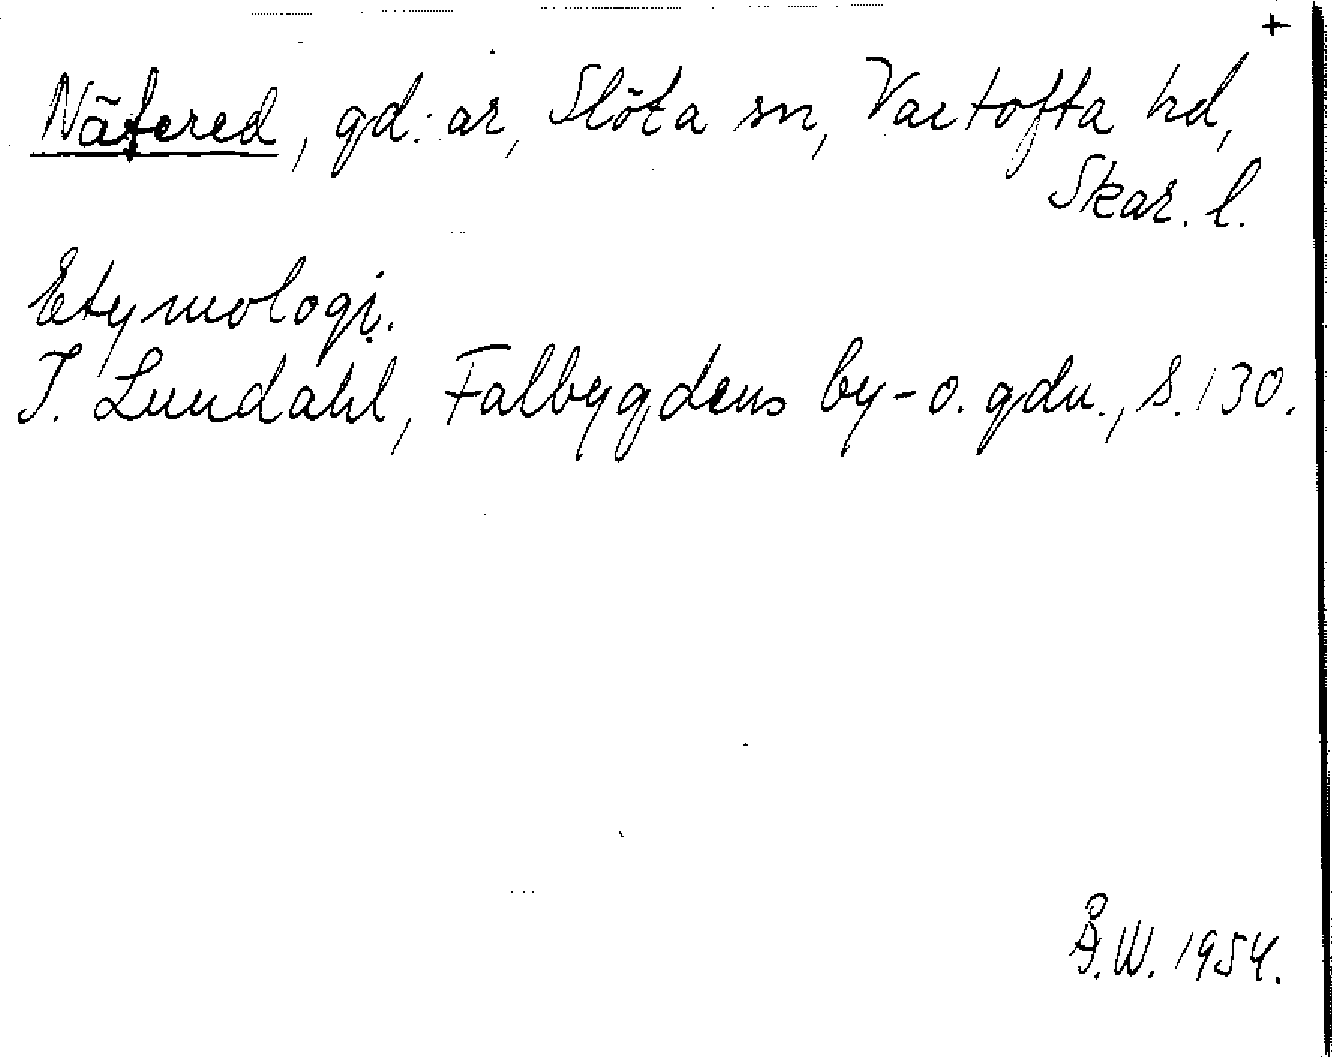 +
Näfered, gd:ar, Slöta sn, Vartofta hd,
Skar. l.
Etymologi.
I. Lundahl, Falbygdens by- o. gdn., s. 130.
Å.W. 1954.